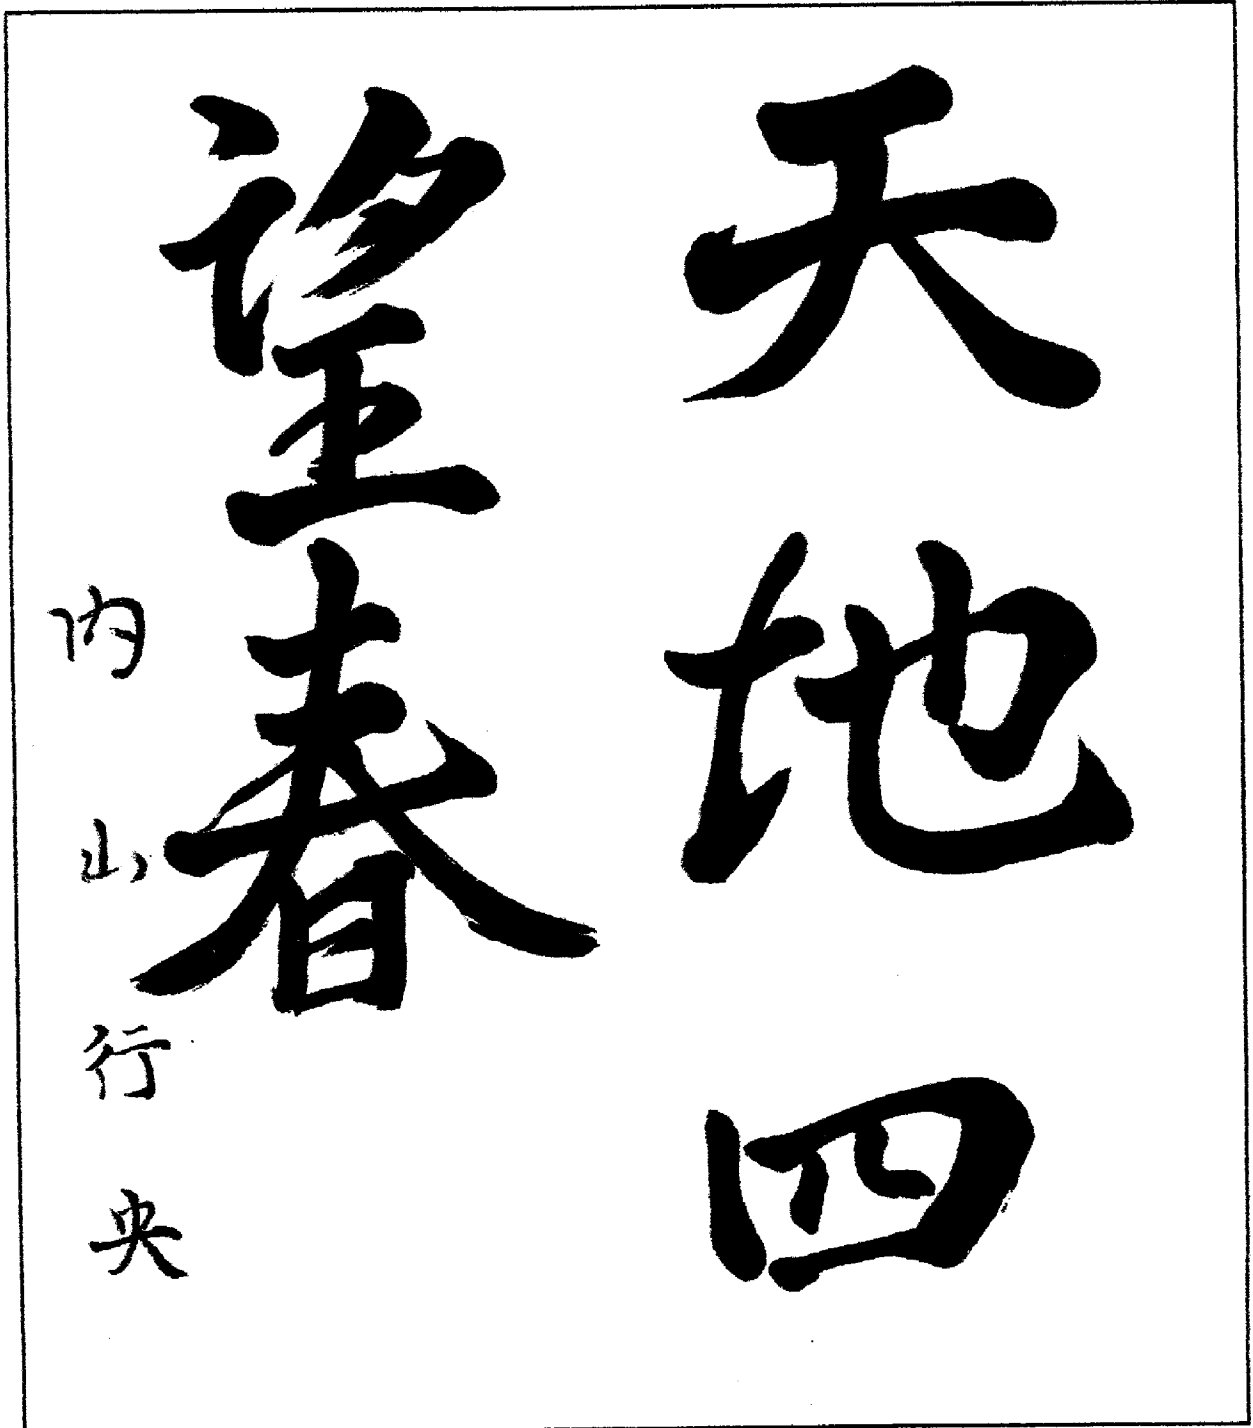 天地四
望春
内山行央